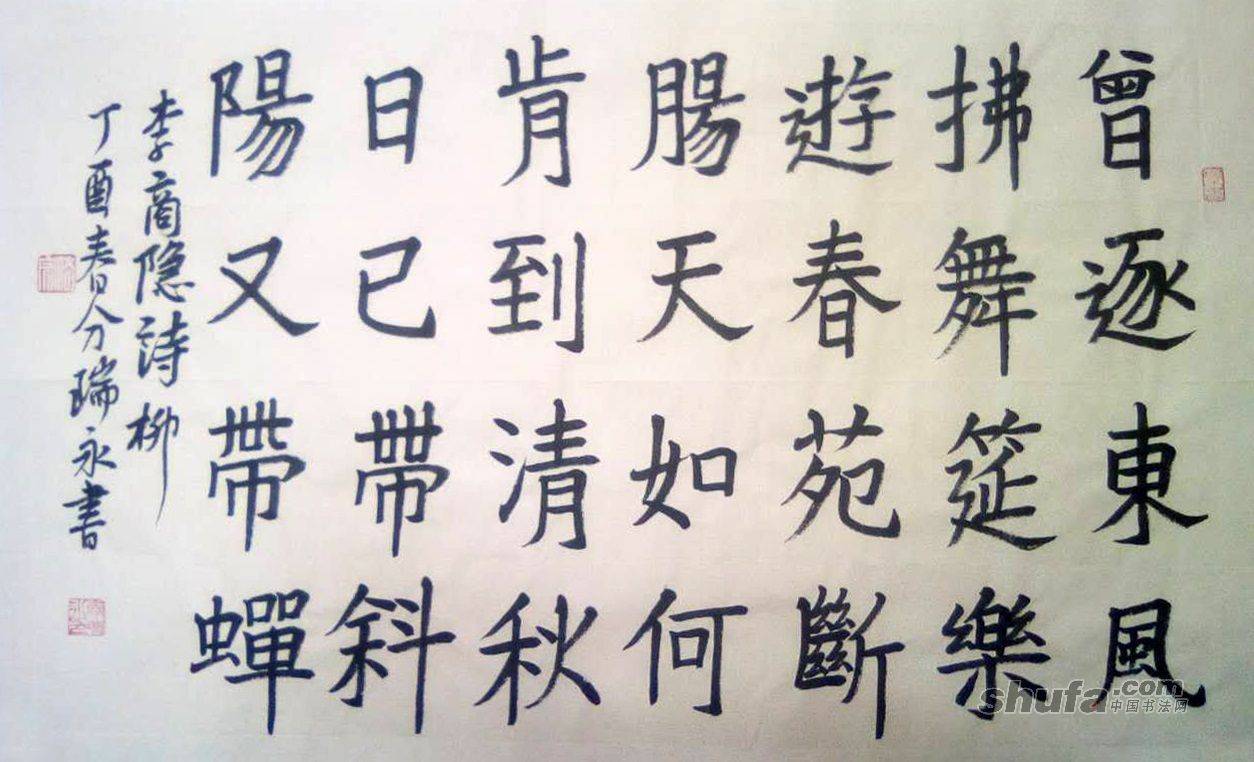 曾逐東風
拂舞筵樂
遊春苑斷
腸天如何
肯到清秋
日已帶斜
陽又帶蟬
李商隐詩柳
丁酉春分瑞永書
shufa.com
中国书法网